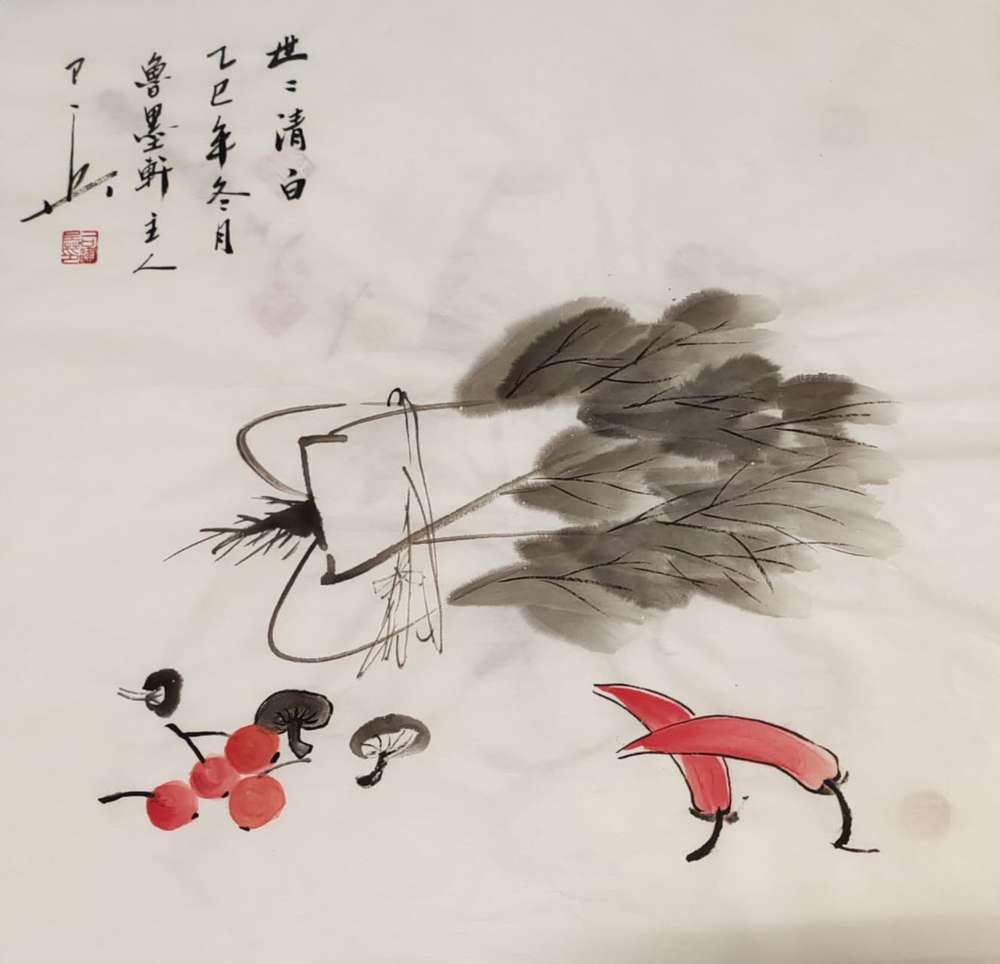 世二清白
乙巳年冬月
魯墨軒主人